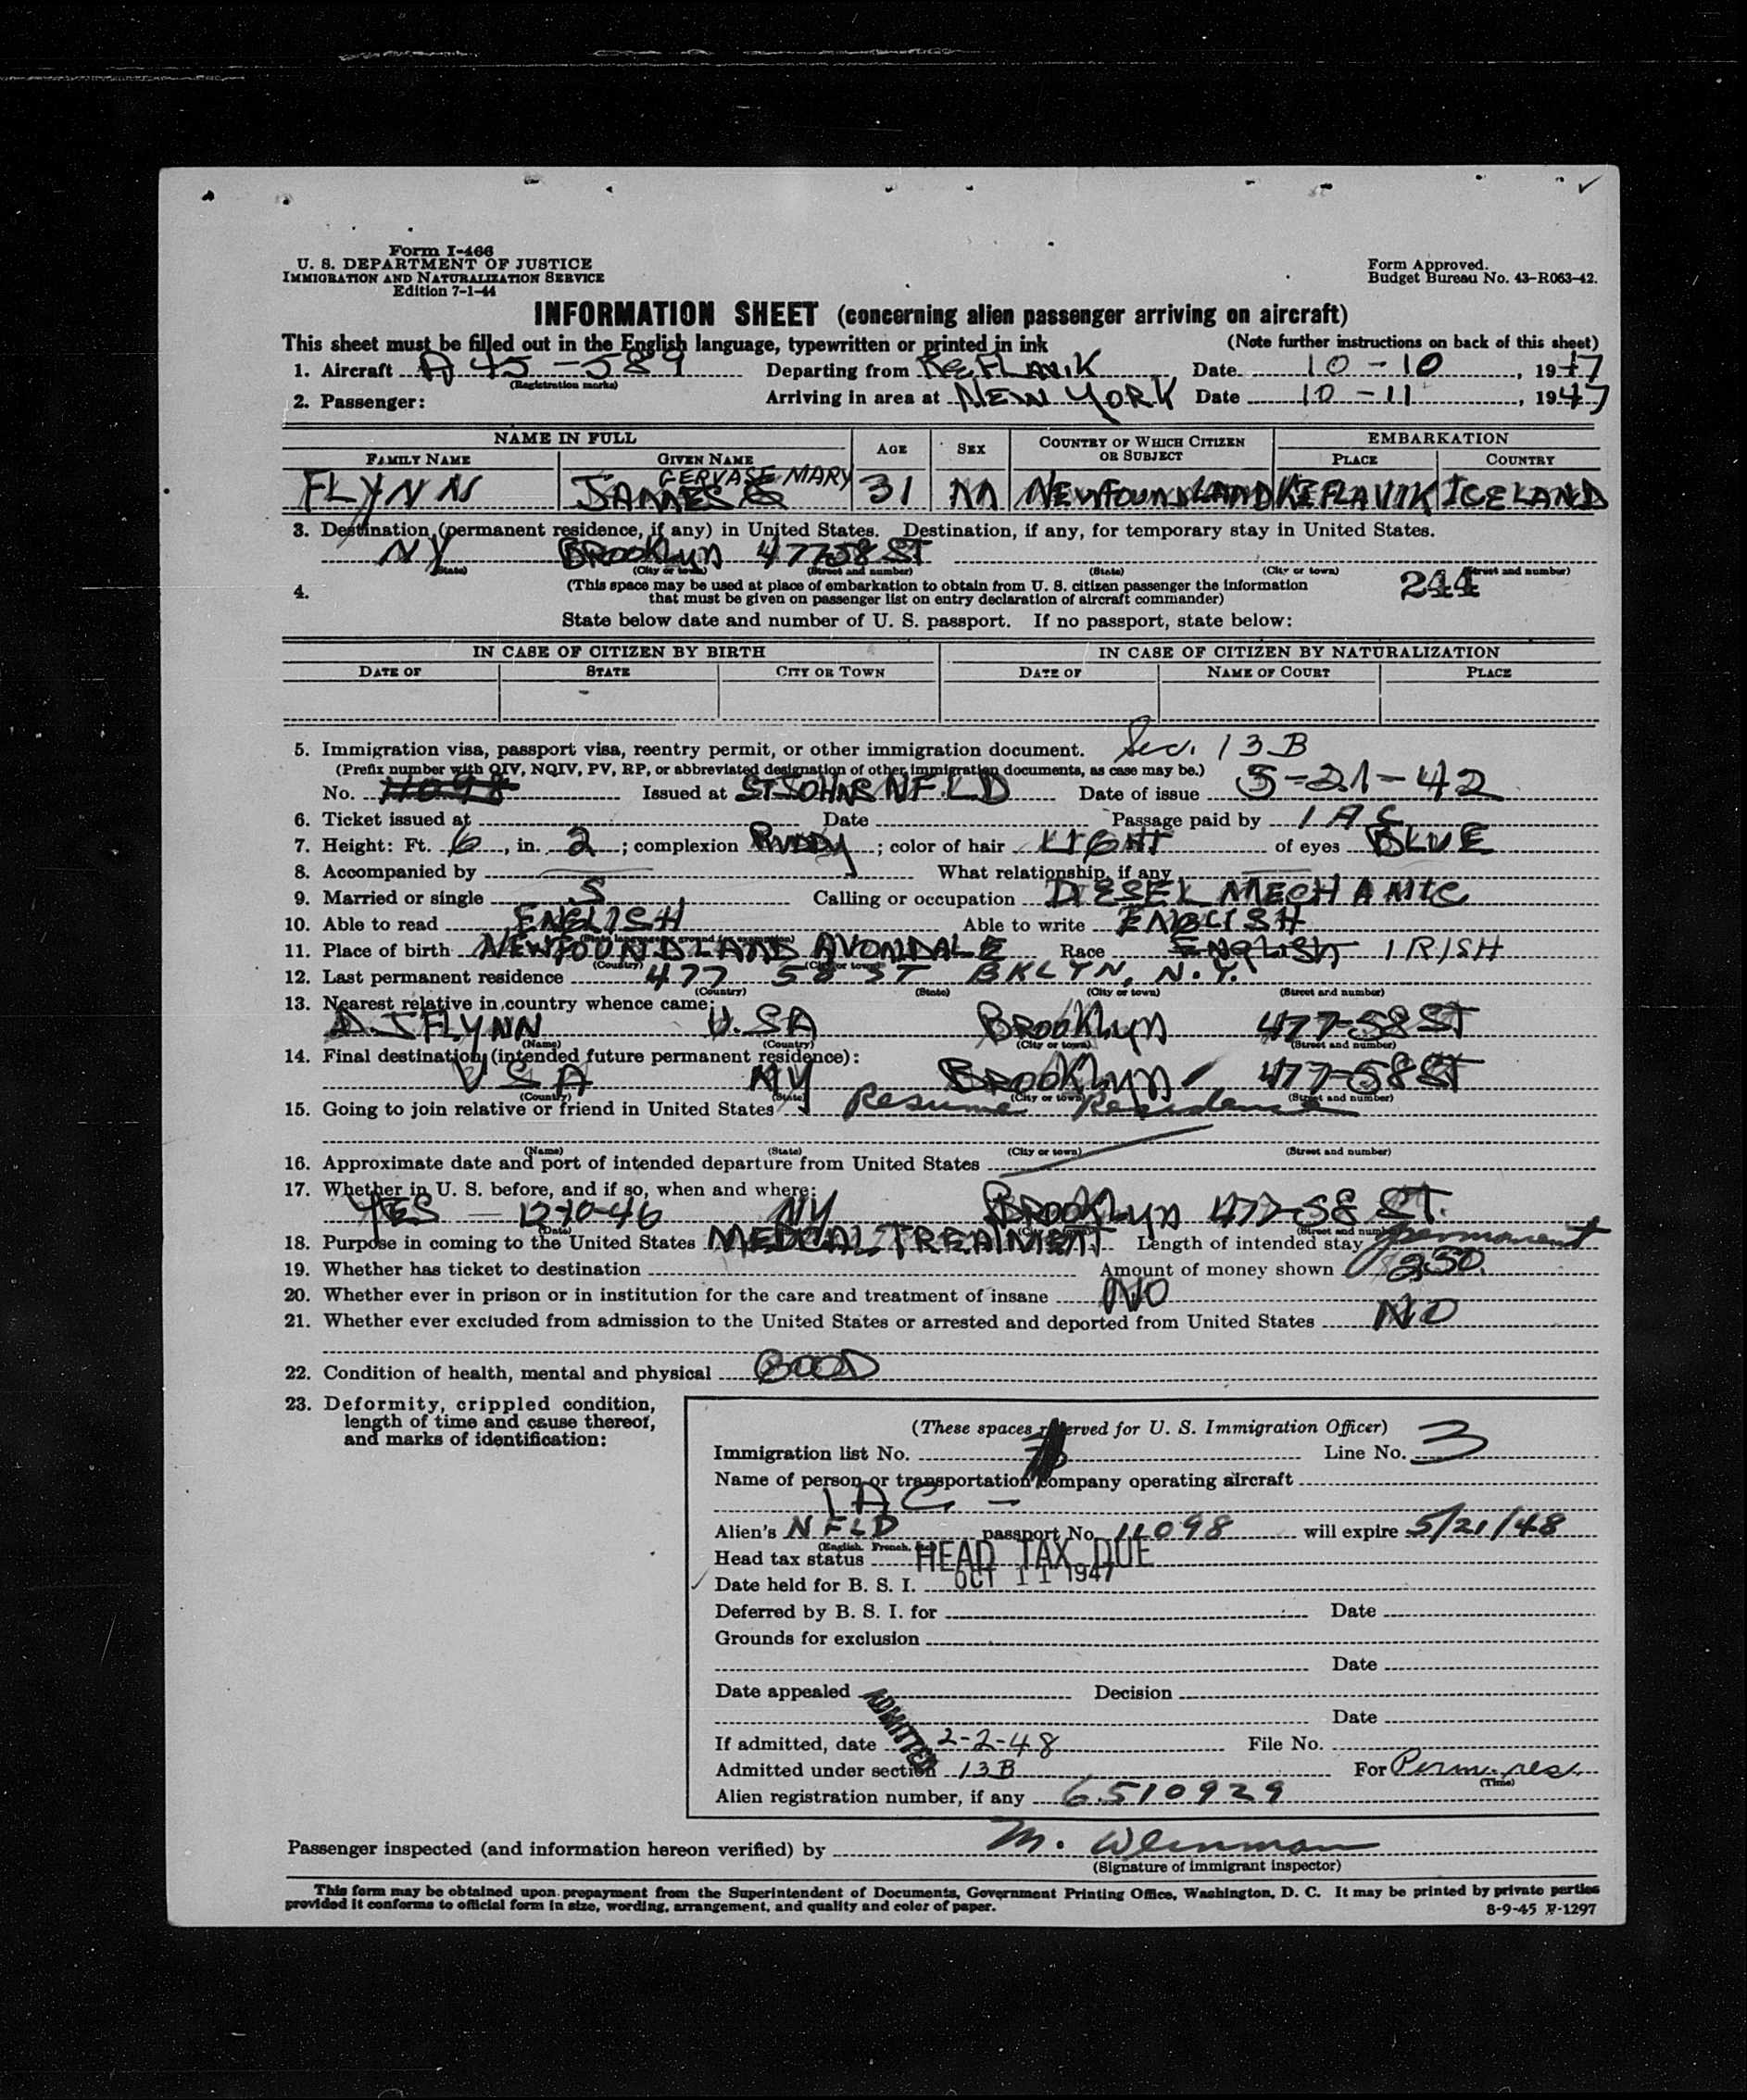 Form I-466
U. S. DEPARTMENT OF JUSTICE
IMMIGRATION AND NATURALIZATION SERVICE
Edition 7-1-44
Form Approved.
Budget Bureau No. 43-R063-42.
INFORMATION SHEET (concerning alien passenger arriving on aircraft)
This sheet must be filled out in the English language, typewritten or printed in ink (Note further instructions on back of this sheet)
1. Aircraft A 45-589 Departing from KEFLAVIK Date 10-10, 1947
(Registration marks)
2. Passenger: Arriving in area at NEW YORK Date 10-11, 1947
NAME IN FULL AGE SEX COUNTRY OF WHICH CITIZEN OR SUBJECT EMBARKATION
FAMILY NAME GIVEN NAME PLACE COUNTRY
GERVASE MARY
FLYNN JAMES G 31 M NEWFOUNDLAND KEFLAVIK ICELAND
3. Destination (permanent residence, if any) in United States. Destination, if any, for temporary stay in United States.
NY BROOKLYN 477-58 ST
(State) (City or town) (Street and number) (State) (City or town) (Street and number)
4. (This space may be used at place of embarkation to obtain from U. S. citizen passenger the information
that must be given on passenger list on entry declaration of aircraft commander)
244
State below date and number of U. S. passport. If no passport, state below:
IN CASE OF CITIZEN BY BIRTH IN CASE OF CITIZEN BY NATURALIZATION
DATE OF STATE CITY OR TOWN DATE OF NAME OF COURT PLACE
5. Immigration visa, passport visa, reentry permit, or other immigration document. Sec. 13B
(Prefix number with QIV, NQIV, PV, RP, or abbreviated designation of other immigration documents, as case may be.)
No. 11098 Issued at ST JOHNS NFLD Date of issue 5-21-42
6. Ticket issued at Date Passage paid by IAC
7. Height: Ft. 6, in. 2; complexion RUDDY; color of hair LIGHT of eyes BLUE
8. Accompanied by What relationship, if any
9. Married or single S Calling or occupation DIESEL MECHANIC
10. Able to read ENGLISH Able to write ENGLISH
11. Place of birth NEWFOUNDLAND AVONDALE Race ENGLISH IRISH
(Country) (City or town)
12. Last permanent residence 477 58 ST BKLYN, N.Y.
(Country) (State) (City or town) (Street and number)
13. Nearest relative in country whence came:
D.J FLYNN U.SA BROOKLYN 477-58 ST
(Name) (Country) (City or town) (Street and number)
14. Final destination (intended future permanent residence):
USA NY BROOKLYN 477-58 ST
(Country) (State) (City or town) (Street and number)
15. Going to join relative or friend in United States Resume Residence
(Name) (State) (City or town) (Street and number)
16. Approximate date and port of intended departure from United States
17. Whether in U. S. before, and if so, when and where:
YES - 12-10-46 NY BROOKLYN 477-58 ST.
(Date) (Street and number)
18. Purpose in coming to the United States MEDCAL TREATMENT Length of intended stay permanent
19. Whether has ticket to destination Amount of money shown 250.
20. Whether ever in prison or in institution for the care and treatment of insane NO
21. Whether ever excluded from admission to the United States or arrested and deported from United States NO
22. Condition of health, mental and physical GOOD
23. Deformity, crippled condition,
length of time and cause thereof,
and marks of identification:
(These spaces reserved for U. S. Immigration Officer)
Immigration list No. Line No. 3
Name of person or transportation company operating aircraft
IAC -
Alien's NFLD passport No. 11098 will expire 5/21/48
(English, French, etc.)
Head tax status HEAD TAX DUE
Date held for B. S. I. OCT 11 1947
Deferred by B. S. I. for Date
Grounds for exclusion
Date
Date appealed Decision
Date
ADMITTED
If admitted, date 2-2-48 File No.
Admitted under section 13B For Perm. res.
(Time)
Alien registration number, if any 6510929
Passenger inspected (and information hereon verified) by M. Weinman
(Signature of immigrant inspector)
This form may be obtained upon prepayment from the Superintendent of Documents, Government Printing Office, Washington, D. C. It may be printed by private parties
provided it conforms to official form in size, wording, arrangement, and quality and color of paper.
8-9-45 F-1297